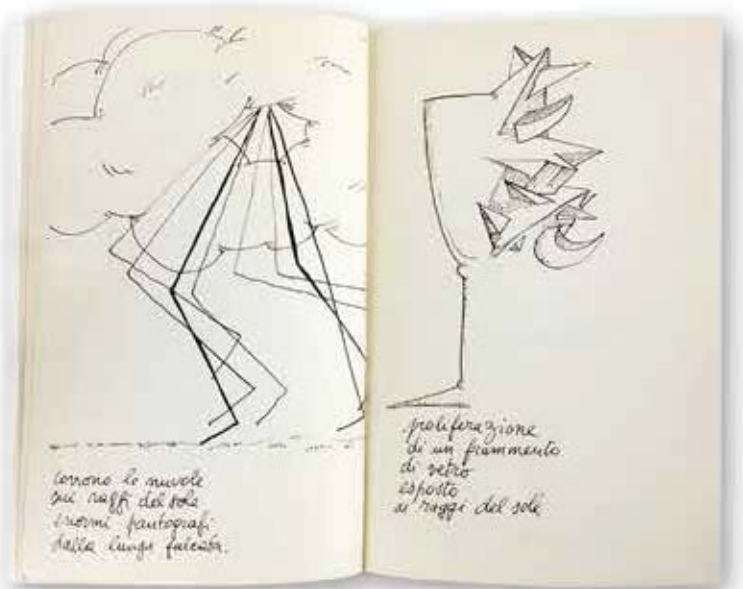 corrono le nuvole
sui raggi del sole
enormi pantografi
dalla lunga falcata.
proliferazione
di un frammento
di vetro
esposto
ai raggi del sole